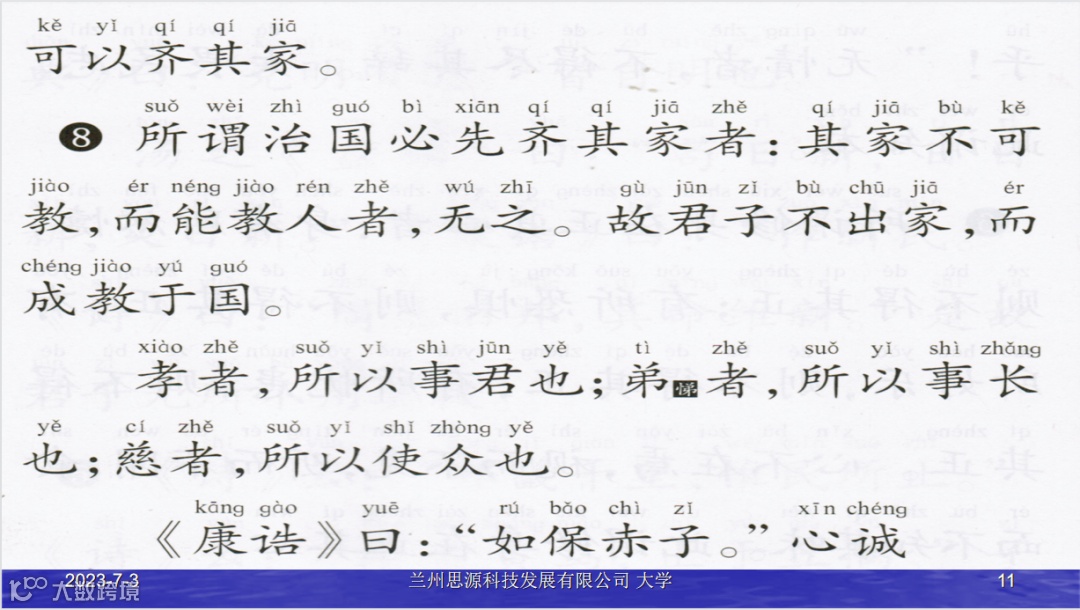 kě yǐ qí qí jiā
可以齐其家。
suǒ wèi zhì guó bì xiān qí qí jiā zhě qí jiā bù kě
❽ 所谓治国必先齐其家者：其家不可
jiào ér néng jiào rén zhě wú zhī gù jūn zǐ bù chū jiā ér
教，而能教人者，无之。故君子不出家，而
chéng jiào yú guó
成教于国。
xiào zhě suǒ yǐ shì jūn yě tì zhě suǒ yǐ shì zhǎng
孝者，所以事君也；弟悌者，所以事长
yě cí zhě suǒ yǐ shǐ zhòng yě
也；慈者，所以使众也。
kāng gào yuē rú bǎo chì zǐ xīn chéng
《康诰》曰：“如保赤子。”心诚
2023-7-3 兰州思源科技发展有限公司 大学 11
大数跨境